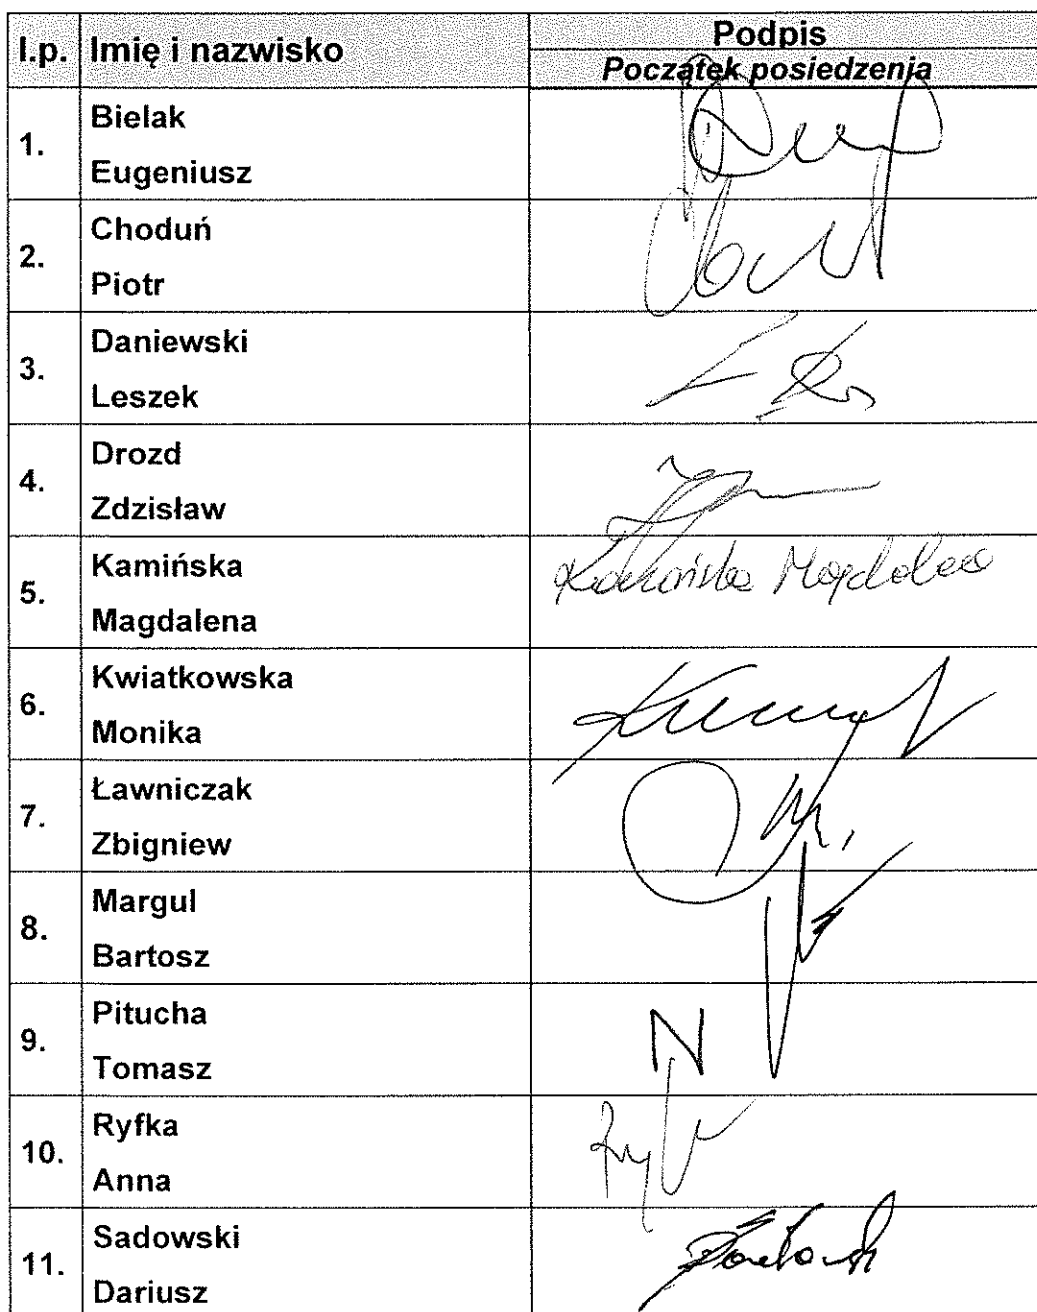 l.p. Imię i nazwisko Podpis
Początek posiedzenia
1. Bielak
Eugeniusz
2. Choduń
Piotr
3. Daniewski
Leszek
4. Drozd
Zdzisław
5. Kamińska
Magdalena
Kamińska Magdalena
6. Kwiatkowska
Monika
7. Ławniczak
Zbigniew
8. Margul
Bartosz
9. Pitucha
Tomasz
N
10. Ryfka
Anna
11. Sadowski
Dariusz